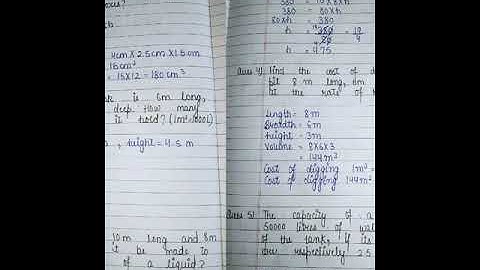 ch
4cm X 2.5cm X 1.5cm
15cm³
= 15X12 = 180 cm³
is 6m long,
deep. How many
it hold? (1m³=1000L)
, height = 4.5 m
10m long and 8m
it be made to
of a liquid?
380
380 = 80xh
80xh = 380
h = 380 = 19
80 4
h = 4.75
Ques 4) Find the cost of
pit 8 m long, 6m
at the rate of
Length = 8m
Breadth = 6m
height = 3m
Volume = 8X6X3
= 144m³
Cost of digging 1m³ =
Cost of digging 144m³
Ques 5) The capacity of a
50000 litres of
of the tank, if its
are respectively 2.5